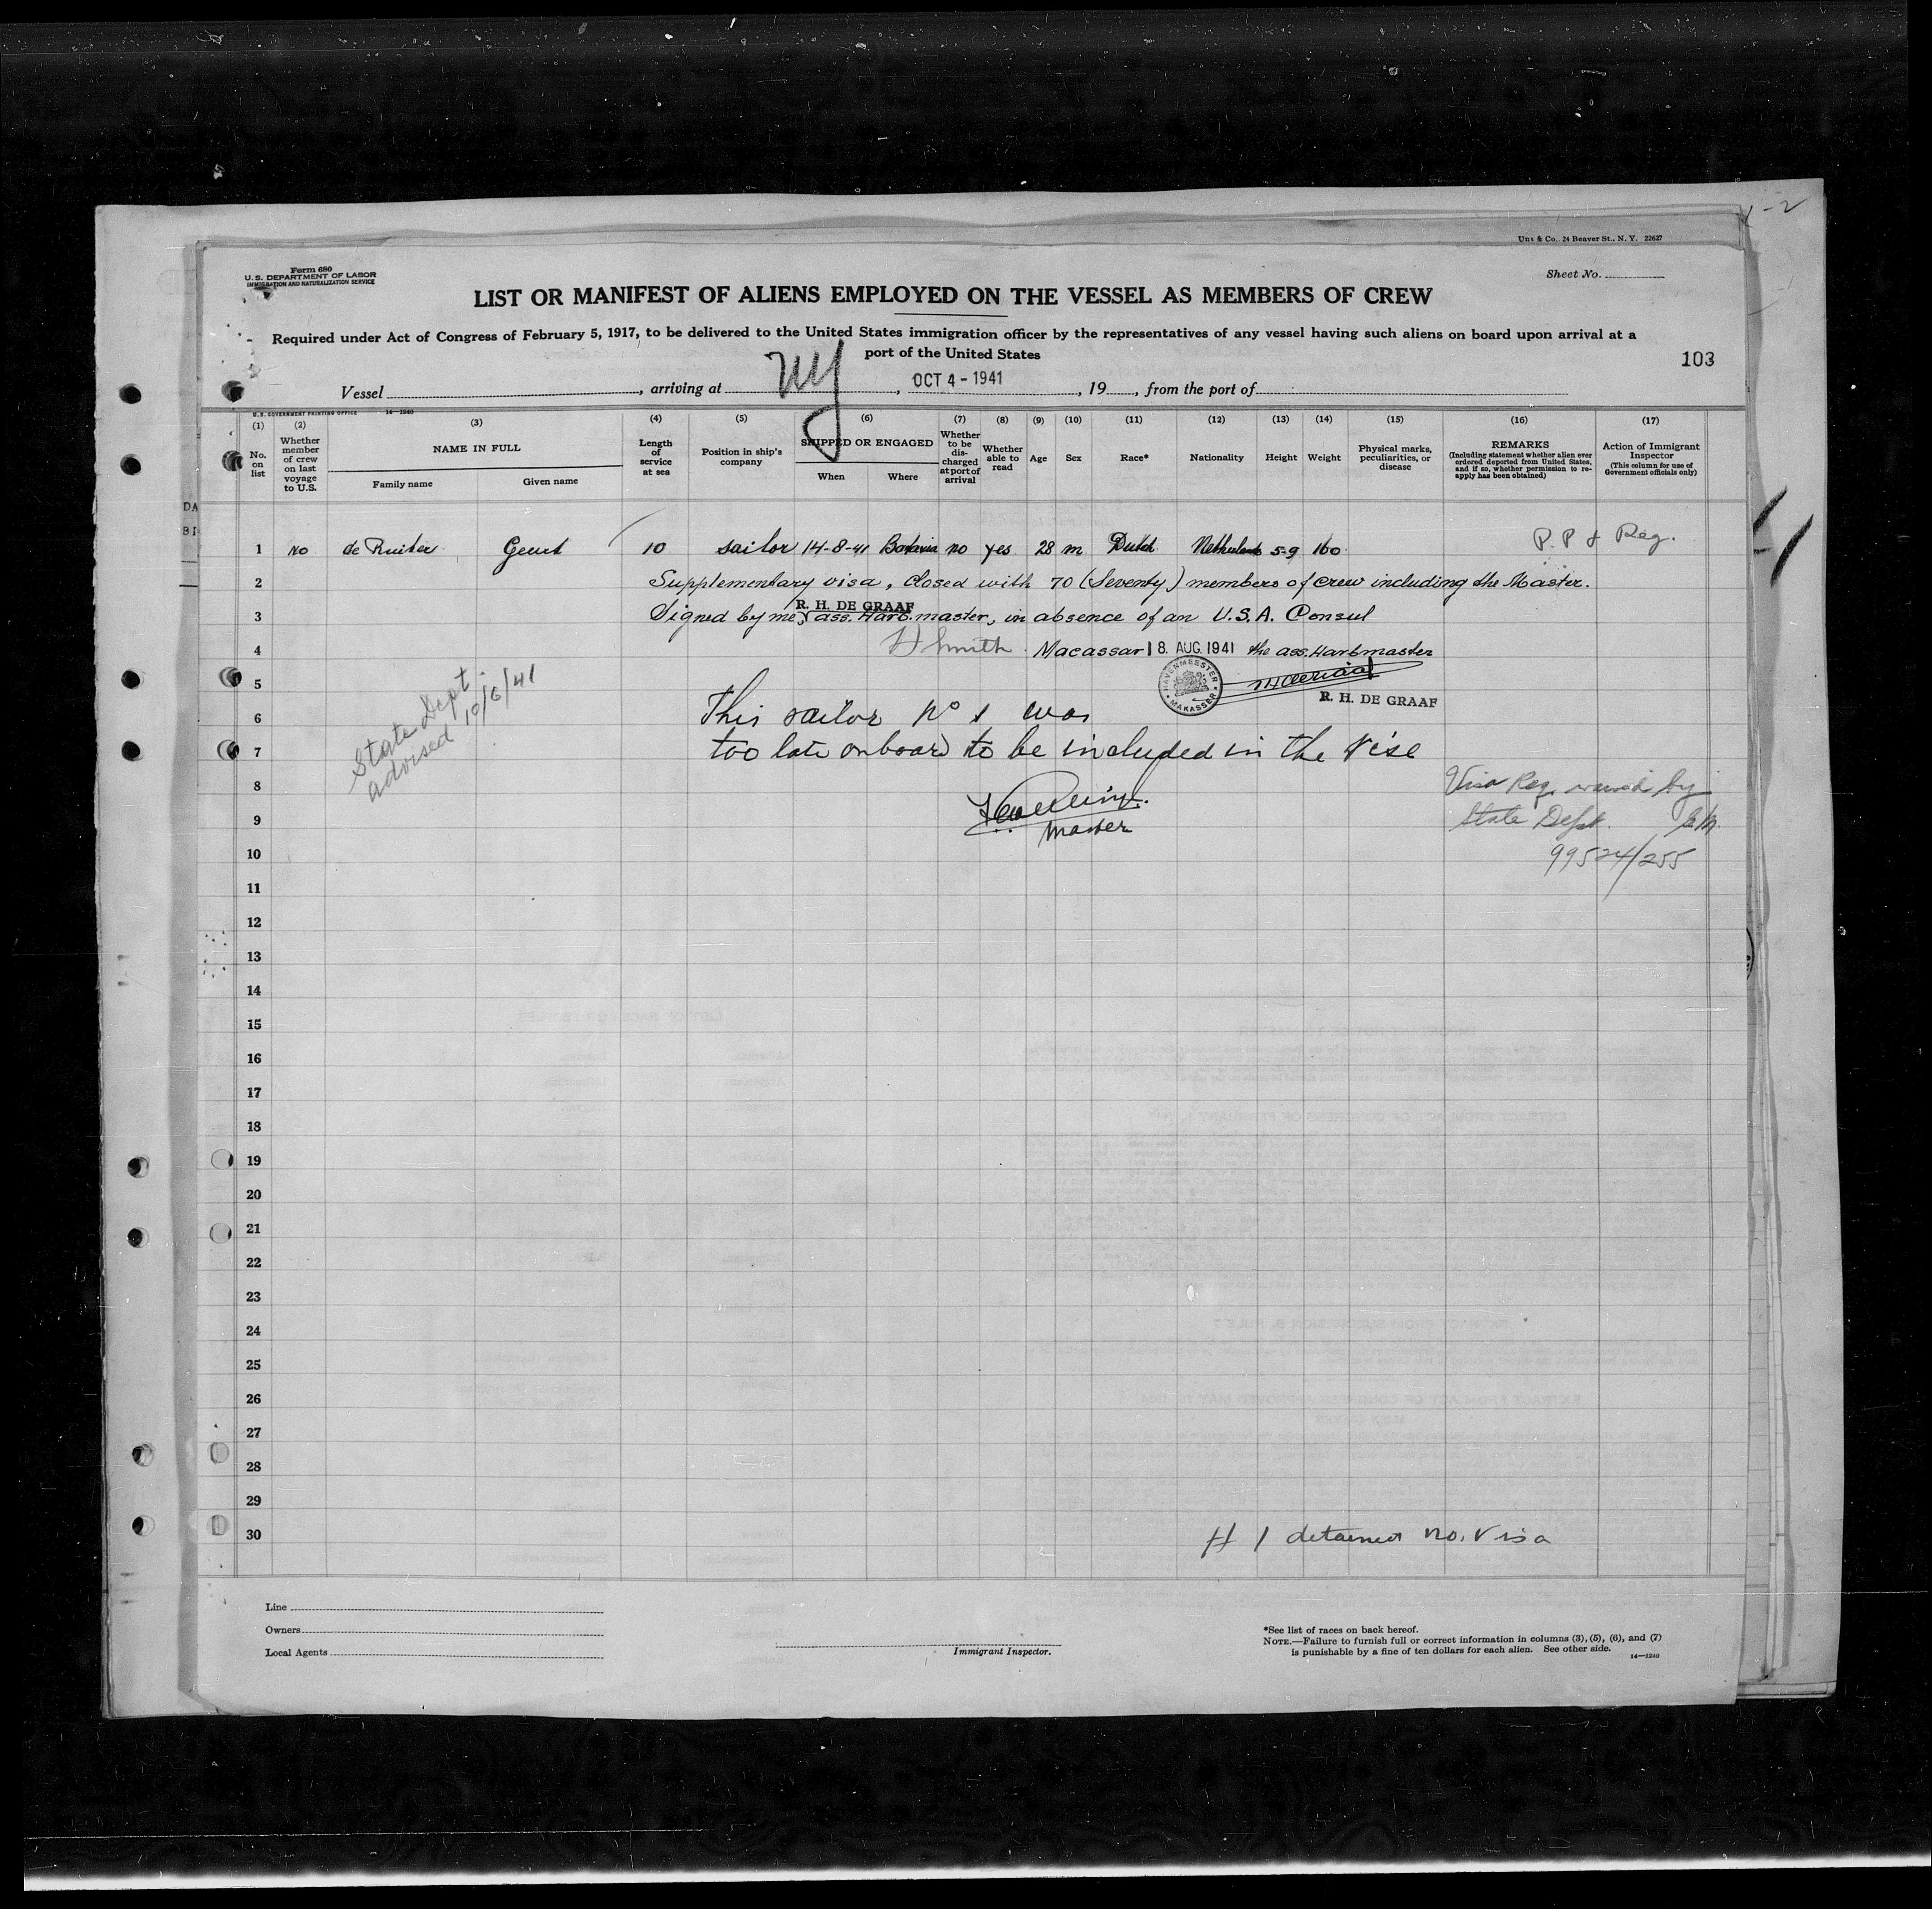 - 2
Uns & Co. 24 Beaver St., N. Y. 22627
Form 680
U. S. DEPARTMENT OF LABOR
IMMIGRATION AND NATURALIZATION SERVICE
Sheet No.
LIST OR MANIFEST OF ALIENS EMPLOYED ON THE VESSEL AS MEMBERS OF CREW
Required under Act of Congress of February 5, 1917, to be delivered to the United States immigration officer by the representatives of any vessel having such aliens on board upon arrival at a
port of the United States
103
Vessel , arriving at NY , OCT 4 - 1941 , 19 , from the port of
U.S. GOVERNMENT PRINTING OFFICE 14—1240
(1) No. on list
(2) Whether member of crew on last voyage to U.S.
(3) NAME IN FULL
Family name Given name
(4) Length of service at sea
(5) Position in ship's company
(6) SHIPPED OR ENGAGED
When Where
(7) Whether to be discharged at port of arrival
(8) Whether able to read
(9) Age
(10) Sex
(11) Race*
(12) Nationality
(13) Height
(14) Weight
(15) Physical marks, peculiarities, or disease
(16) REMARKS
(Including statement whether alien ever ordered deported from United States, and if so, whether permission to re-apply has been obtained)
(17) Action of Immigrant Inspector
(This column for use of Government officials only)
DA
BI
1 No de Ruiter Geert 10 sailor 14-8-41 Batavia no yes 28 m Dutch Netherlands 5-9 160 P.P & Reg.
2 Supplementary visa, closed with 70 (Seventy) members of crew including the Master.
R. H. DE GRAAF
3 Signed by me, ass. Harb. master, in absence of an U.S.A. Consul
4 Smith Macassar 18 AUG. 1941 the ass. Harbmaster
5 HAVENMEESTER MAKASSER
R. H. DE GRAAF
State Dept.
advised 10/6/41
6 This sailor No 1 was
7 too late onboard to be included in the Vise
8 Visa Req. waived by
9 Master State Dept.
10 99524/255
11
12
13
14
15
16
17
18
19
20
21
22
23
24
25
26
27
28
29
30 # 1 detained no. Visa
Line
Owners
Local Agents
Immigrant Inspector.
*See list of races on back hereof.
NOTE.—Failure to furnish full or correct information in columns (3), (5), (6), and (7)
is punishable by a fine of ten dollars for each alien. See other side.
14—1240